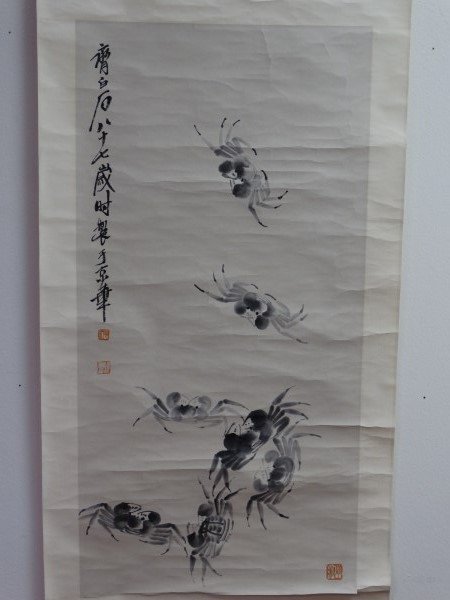 齊白石八十七歲时製于京華